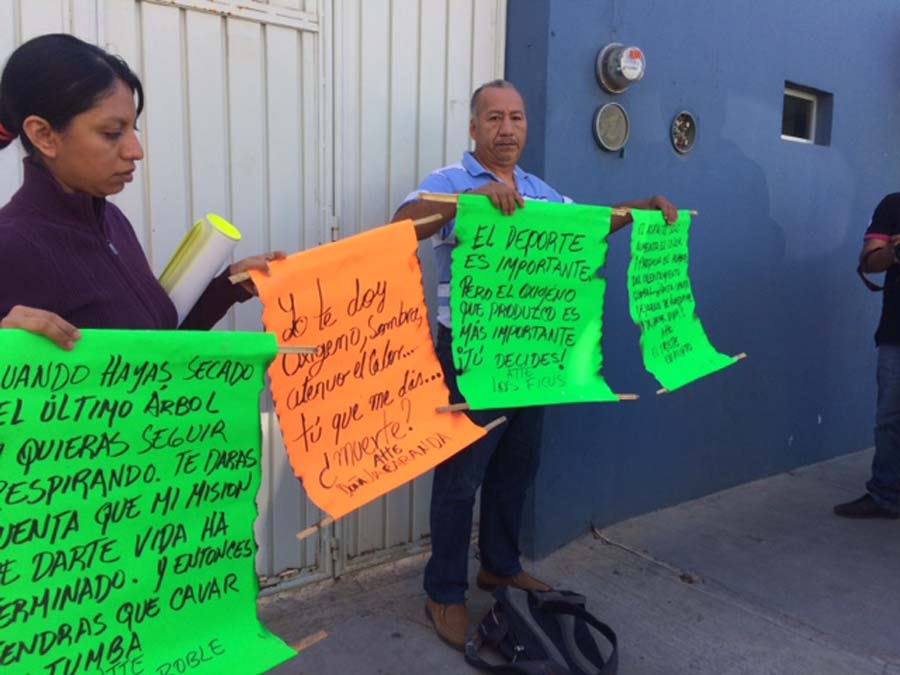 CUANDO HAYAS SECADO
EL ÚLTIMO ARBOL
Y QUIERAS SEGUIR
RESPIRANDO. TE DARAS
CUENTA QUE MI MISION
DE DARTE VIDA HA
TERMINADO. Y ENTONCES
TENDRAS QUE CAVAR
TUMBA
ATTE ROBLE
Yo te doy
Oxigeno, Sombra,
atenuo el Calor...
tú que me das...
¿muerte?
Atte
JACARANDA
EL DEPORTE
ES IMPORTANTE,
PERO EL OXIGENO
QUE PRODUZCO ES
MÁS IMPORTANTE
¡TÚ DECIDES!
ATTE
LOS FICUS
AUMENTA EL CALOR
GLOBAL
ATTE
EL